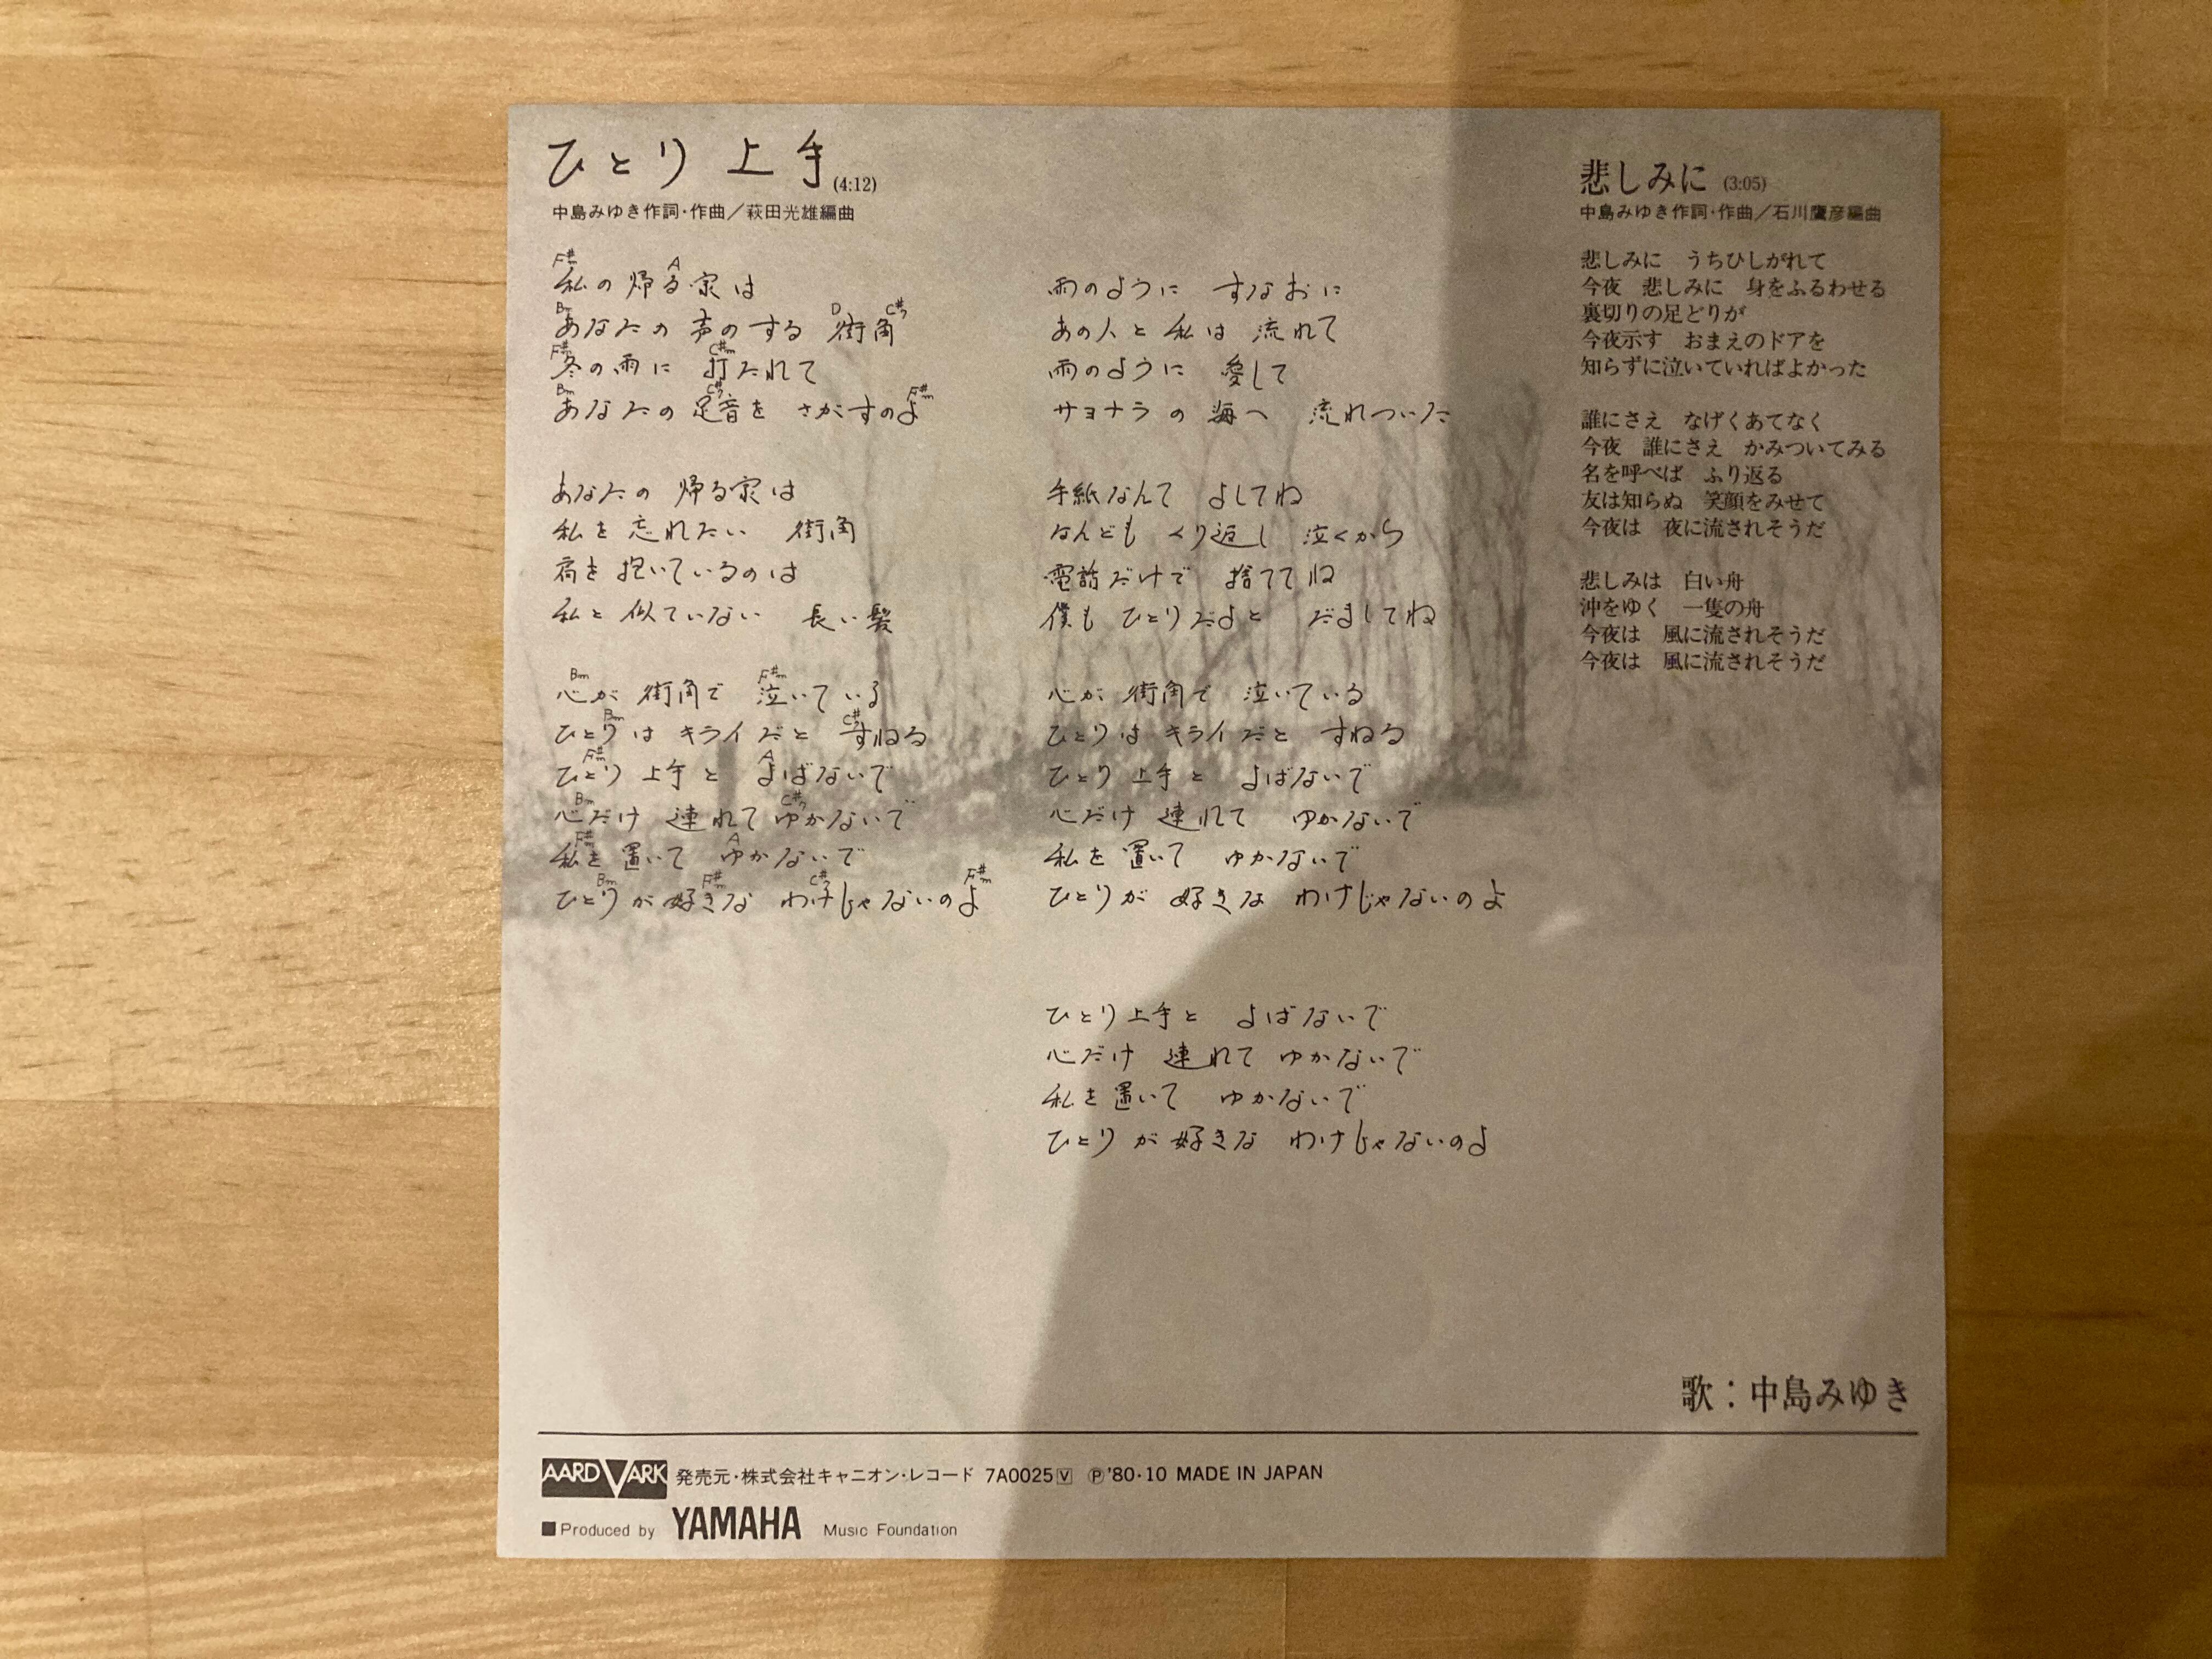 ひとり上手 (4:12)
中島みゆき作詞・作曲／萩田光雄編曲
F#m A
私の帰る家は
Bm D C#7
あなたの声のする 街角
F#m C#m
冬の雨に 打たれて
Bm C#7 F#m
あなたの足音を さがすのよ
あなたの 帰る家は
私を 忘れたい 街角
肩を 抱いているのは
私と 似ていない 長い髪
Bm F#m
心が 街角で 泣いている
Bm C#7
ひとりは キライだと すねる
F#m A
ひとり 上手と よばないで
Bm C#7
心だけ 連れて ゆかないで
F#m A
私を 置いて ゆかないで
Bm F#m C#7 F#m
ひとりが 好きな わけじゃないのよ
雨のように すなおに
あの人と 私は 流れて
雨のように 愛して
サヨナラの 海へ 流れついた
手紙なんて よしてね
なんども くり返し 泣くから
電話だけで 捨ててね
僕も ひとりだよと だましてね
心が 街角で 泣いている
ひとりは キライだと すねる
ひとり 上手と よばないで
心だけ 連れて ゆかないで
私を 置いて ゆかないで
ひとりが 好きな わけじゃないのよ
ひとり上手と よばないで
心だけ 連れて ゆかないで
私を 置いて ゆかないで
ひとりが 好きな わけじゃないのよ
悲しみに (3:05)
中島みゆき作詞・作曲／石川鷹彦編曲
悲しみに うちひしがれて
今夜 悲しみに 身をふるわせる
裏切りの足どりが
今夜示す おまえのドアを
知らずに泣いていればよかった
誰にさえ なげくあてなく
今夜 誰にさえ かみついてみる
名を呼べば ふり返る
友は知らぬ 笑顔をみせて
今夜は 夜に流されそうだ
悲しみは 白い舟
沖をゆく 一隻の舟
今夜は 風に流されそうだ
今夜は 風に流されそうだ
歌：中島みゆき
AARDVARK 発売元・株式会社キャニオン・レコード 7A0025Ⓥ Ⓟ'80・10 MADE IN JAPAN
■Produced by YAMAHA Music Foundation